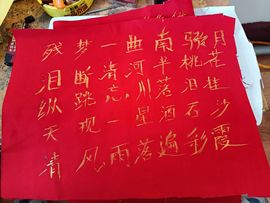 月花桂沙霞
骏桃泪石彩
南半落酒遍
曲河川星落
一清忘一雨
梦断跳现风
残泪纵天清